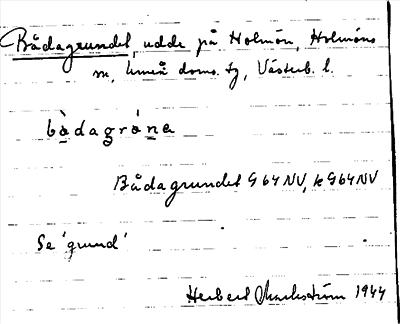 Bådagrundet, udde på Holmön, Holmöns
sn, Umeå doms. tg, Västerb. l.
bòdagrónₑ
Bådagrundet G 64 NV, k G64NV
Se 'grund'
Herbert Markström 1944